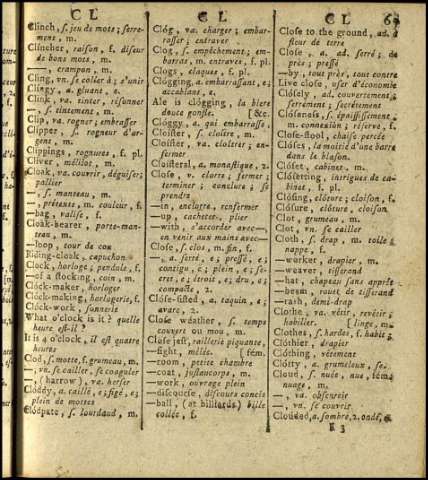 C L
Clinch, s. jeu de mots; serre-
mens, m.
Clincher, raison, f. diseur
de bons mots, m.
—, crampon, m.
Cling, vn. se coller à; s'unir
Clingy, a. gluant, e.
Clink, va. tinter, résonner
—, s. tintement, m.
Clip, va. rogner; embrasser
Clipper, s. rogneur d'ar-
gent, m.
Clippings, rognures, f. pl.
Cliver, mélilot, m.
Cloak, va. couvrir, déguiser;
pallier
—, s. manteau, m.
—, prétexte, m. couleur, f.
—bag, valise, f.
Cloak-bearer, porte-man-
teau, m.
—loop, tour de cou
Riding-cloak, capuchon
Clock, horloge; pendule, f.
—of a stocking, coin, m.
Clock-maker, horloger
Clock-making, horlogerie, f.
Clock-work, sonnerie
What o'clock is it? quelle
heure est-il?
It is 4 o'clock, il est quatre
heures
Clod, s. motte, f. grumeau, m.
—, vn. se cailler, se coaguler
—, (harrow), va. herser
Cloddy, a. caillé, e; figé, e;
plein de mottes
Clodpate, s. lourdaud, m.
C L
Clóg, va. charger; embar-
rasser; entraver
Clog, s. empêchement; em-
barras, m. entraves, f. pl.
Clogs, claques, f. pl.
Clógging, a. embarrassant, e;
accablant, e.
Ale is clógging, la biere
douce gonfle. [&c.
Clóggy, a. qui embarrasse,
Cloister, s. cloître, m.
Cloister, va. cloîtrer; en-
fermer
Cloisteral, a. monastique, 2.
Close, v. clorre; fermer;
terminer; conclure; se
prendre
—in, enclorre, renfermer
—up, cacheter, plier
—with, s'accorder avec—,
en venir aux mains avec—
Close, s. clos, m. fin, f.
—, a. serré, e; pressé, e;
contigu, e; plein, e; se-
cret, e; étroit, e; dru, e;
compacte, 2.
Close-fisted, a. taquin, e;
avare, 2.
Close weather, s. temps
couvert ou mou, m.
Close jest, raillerie piquante,
—fight, mêlée [fém.
—room, petite chambre
—coat, justaucorps, m.
—work, ouvrage plein
—discourse, discours concis
—ball, (at billiards) bille
collée, f.
C L
Close to the ground, ad. à
fleur de terre
Close, a. ad. serré; de
près; pressé
—by, tout près, tout contre
Live close, user d'économie
Clósely, ad. couvertement;
serrément; secrètement
Closeness, s. épaississement,
m. connexion; réserve, f.
Close-stool, chaise percée
Closes, la moitié d'une barre
dans le blason.
Clóset, cabinet, m.
Clóseting, intrigues de ca-
binet, f. pl.
Clósing, clôture; cloison, f.
Clósure, clôture, cloison
Clot, grumeau, m.
Clot, vn. se cailler
Cloth, s. drap, m. toile;
nappe, f.
—worker, drapier, m.
—weaver, tisserand
—hat, chapeau sans apprêt
—beam, rouet de tisserand
—rash, demi-drap
Clothe, va. vêtir, revêtir;
habiller. [linge, m.
Clothes, s. hardes, f. habit;
Clóthier, drapier
Clóthing, vêtement
Clótty, a. grumeleux, se.
Cloud, s. nuée, nue, fém.
nuage, m.
—, va. obscurcir
—, vn. se couvrir
Clouded, a. sombre, 2. ondé, e.
K 3